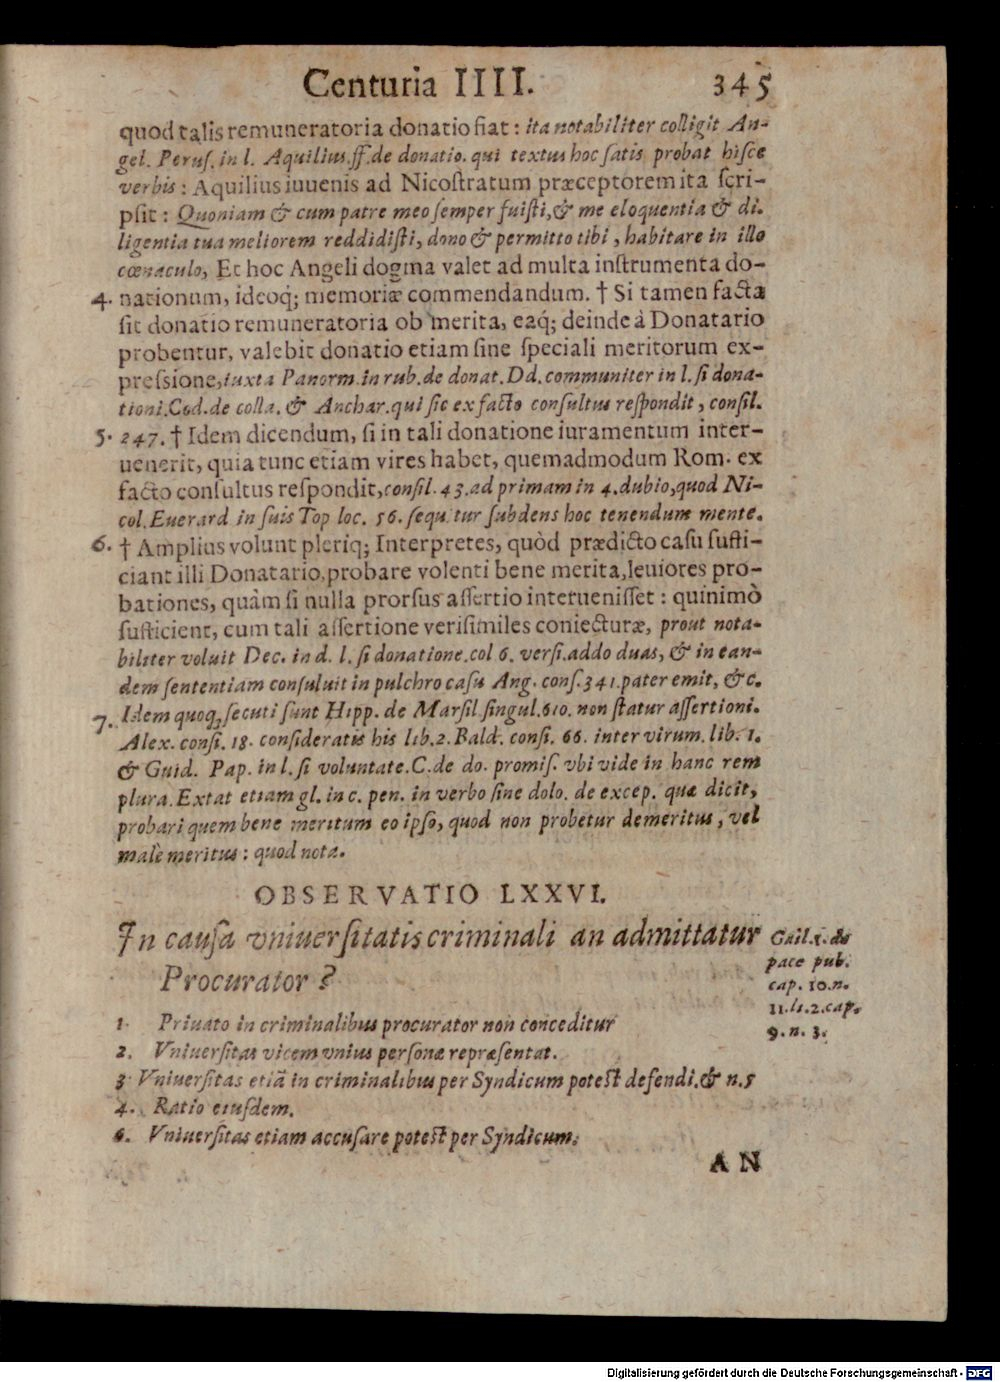 Centuria IIII. 345
quod talis remuneratoria donatio fiat : ita notabiliter colligit An-
gel. Perus. in l. Aquilius. ff. de donatio. qui textus hoc satis probat hisce
verbis : Aquilius iuuenis ad Nicostratum præceptorem ita scri-
psit : Quoniam & cum patre meo semper fuisti, & me eloquentia & di-
ligentia tua meliorem reddidisti, dono & permitto tibi, habitare in illo
cœnaculo, Et hoc Angeli dogma valet ad multa instrumenta do-
4. nationum, ideoq; memoriæ commendandum. † Si tamen facta
sit donatio remuneratoria ob merita, eaq; deinde à Donatario
probentur, valebit donatio etiam sine speciali meritorum ex-
pressione, iuxta Panorm. in rub. de donat. Dd. communiter in l. si dona-
tioni. Cod. de colla. & Anchar. qui sic ex facto consultus respondit, consil.
5. 247. † Idem dicendum, si in tali donatione iuramentum inter-
uenerit, quia tunc etiam vires habet, quemadmodum Rom. ex
facto consultus respondit, consil. 43. ad primam in 4. dubio, quod Ni-
col. Euerard in suis Top loc. 56. sequitur subdens hoc tenendum mente.
6. † Amplius volunt pleriq; Interpretes, quòd prædicto casu suffi-
ciant illi Donatario, probare volenti bene merita, leuiores pro-
bationes, quàm si nulla prorsus assertio interuenisset : quinimò
sufficient, cum tali assertione verisimiles coniecturæ, prout nota-
biliter voluit Dec. in d. l. si donatione. col 6. versi. addo duas, & in ean-
dem sententiam consuluit in pulchro casu Ang. cons. 341. pater emit, &c.
7. Idem quoq; secuti sunt Hipp. de Marsil. singul. 610. non statur assertioni.
Alex. consi. 18. consideratis his lib. 2. Bald. consi. 66. inter virum. lib. 1.
& Guid. Pap. in l. si voluntate. C. de do. promis. vbi vide in hanc rem
plura. Extat etiam gl. in c. pen. in verbo sine dolo. de excep. quæ dicit,
probari quem bene meritum eo ipso, quod non probetur demeritus, vel
malè meritus : quod nota.
OBSERVATIO LXXVI.
In causa vniuersitatis criminali an admittatur
Procurator ?
Gail. 1. de
pace pub.
cap. 10. n.
11. li. 2. cap.
9. n. 3.
1. Priuato in criminalibus procurator non conceditur
2. Vniuersitas vicem vnius personæ repræsentat.
3 Vniuersitas etiā in criminalibus per Syndicum potest defendi. & n. 5
4. Ratio eiusdem.
6. Vniuersitas etiam accusare potest per Syndicum.
AN
Digitalisierung gefördert durch die Deutsche Forschungsgemeinschaft - DFG